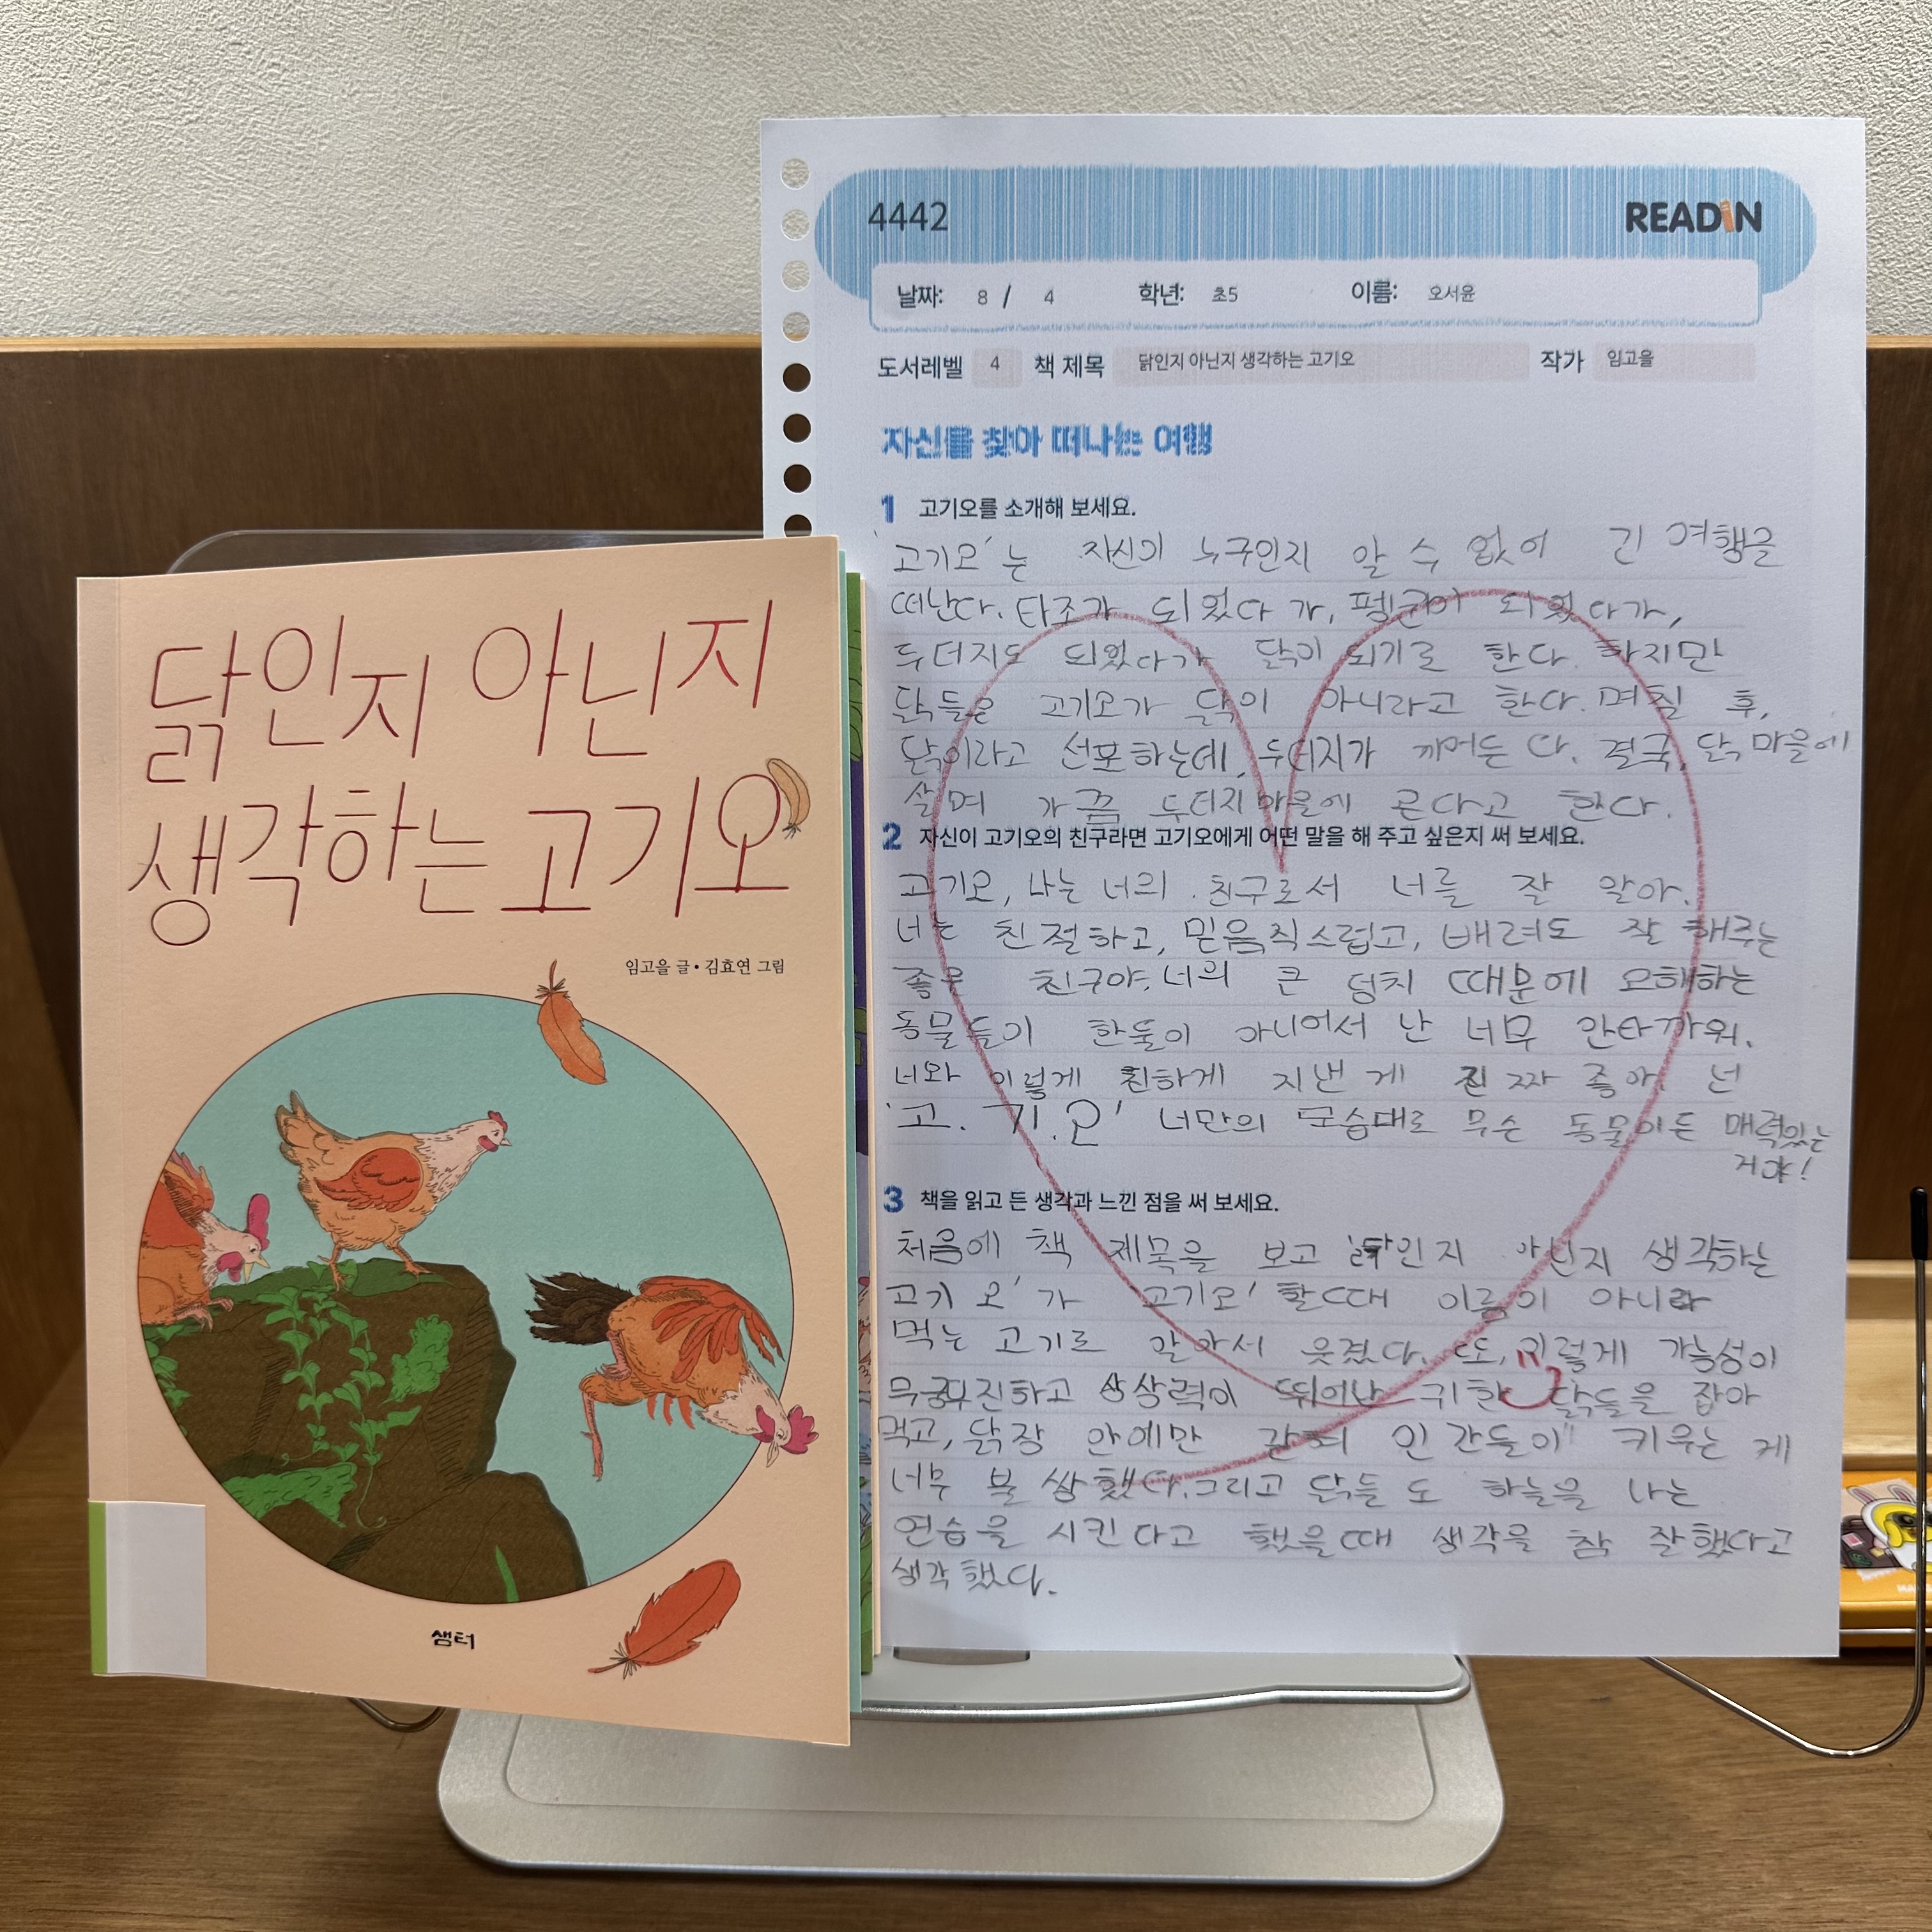 닭인지 아닌지
생각하는 고기오
임고을 글 • 김효연 그림
샘터
4442
READIN
날짜: 8 / 4 학년: 초5 이름: 오서윤
도서레벨 4 책 제목 닭인지 아닌지 생각하는 고기오 작가 임고을
자신을 찾아 떠나는 여행
1 고기오를 소개해 보세요.
'고기오'는 자신이 누구인지 알 수 없어 긴 여행을
떠난다. 타조가 되었다가, 펭귄이 되었다가,
두더지도 되었다가 닭이 되기로 한다. 하지만
닭들은 고기오가 닭이 아니라고 한다. 며칠 후,
닭이라고 선포하는데, 두더지가 끼어든다. 결국, 닭 마을에
살며 가끔 두더지 마을에 온다고 한다.
2 자신이 고기오의 친구라면 고기오에게 어떤 말을 해 주고 싶은지 써 보세요.
고기오, 나는 너의 친구로서 너를 잘 알아.
너는 친절하고, 믿음직스럽고, 배려도 잘 해주는
좋은 친구야. 너의 큰 덩치 때문에 오해하는
동물들이 한둘이 아니어서 난 너무 안타까워.
너와 이렇게 친하게 지낸 게 진짜 좋아. 넌
'고. 기. 오' 너만의 모습대로 무슨 동물이든 매력있는
거야!
3 책을 읽고 든 생각과 느낀 점을 써 보세요.
처음에 책 제목을 보고 '닭인지 아닌지 생각하는
고기오'가 고기오' 할때 이름이 아니라
먹는 고기로 알아서 웃겼다. 또, 이렇게 가능성이
무궁무진하고 상상력이 뛰어난 귀한 닭들을 잡아
먹고, 닭장 안에만 갇혀 인간들이 키우는 게
너무 불쌍했다. 그리고 닭들도 하늘을 나는
연습을 시킨다고 했을때 생각을 참 잘했다고
생각했다.